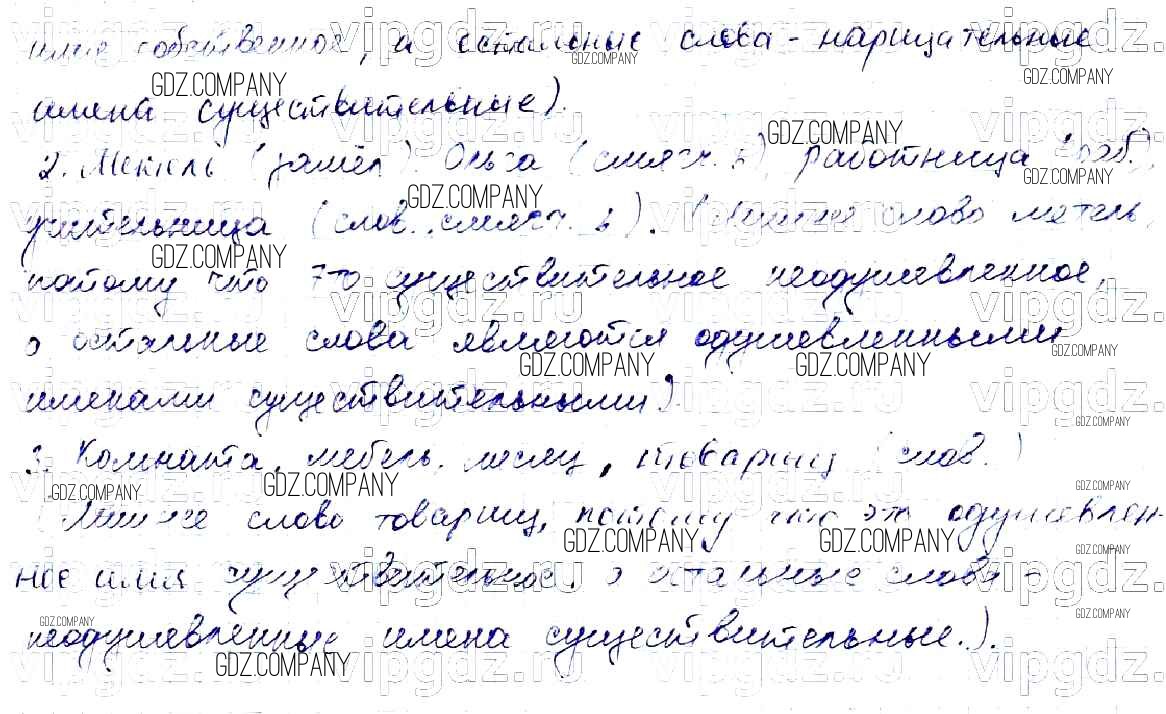 имя собственное, а остальные слова - нарицательные
имена существительные).
2. Метель (замёл). Ольга (смягч. ь), работница
учительница (слов., смягч. ь). (Лишнее слово метель,
потому что это существительное неодушевленное,
а остальные слова являются одушевленными
именами существительными).
3. Комната, мебель, месяц, товарищ (слов.)
(Лишнее слово товарищ, потому что это одушевлен-
ное имя существительное, а остальные слова -
неодушевленные имена существительные.).
vipgdz.ru
GDZ.COMPANY